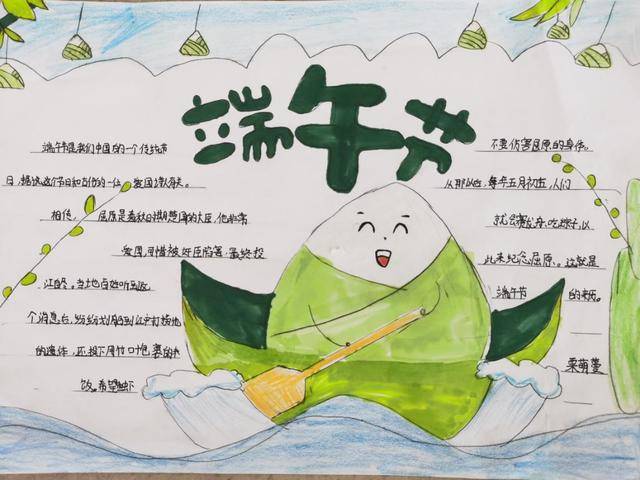 端午节
端午节是我们中国的一个传统节
日，据说这个节日和古代的一位爱国诗人有关。
相传，屈原是春秋时期楚国的大臣，他非常
爱国，可惜被奸臣陷害，最终投
江自尽。当地百姓听到这
个消息后，纷纷划船到江中打捞他
的遗体，还投下用竹叶包裹的米
饭。希望鱼虾
不要伤害屈原的身体。
从那以后，每年五月初五，人们
就会赛龙舟、吃粽子，以
此来纪念屈原。这就是
端午节的来历。
栗萌萱